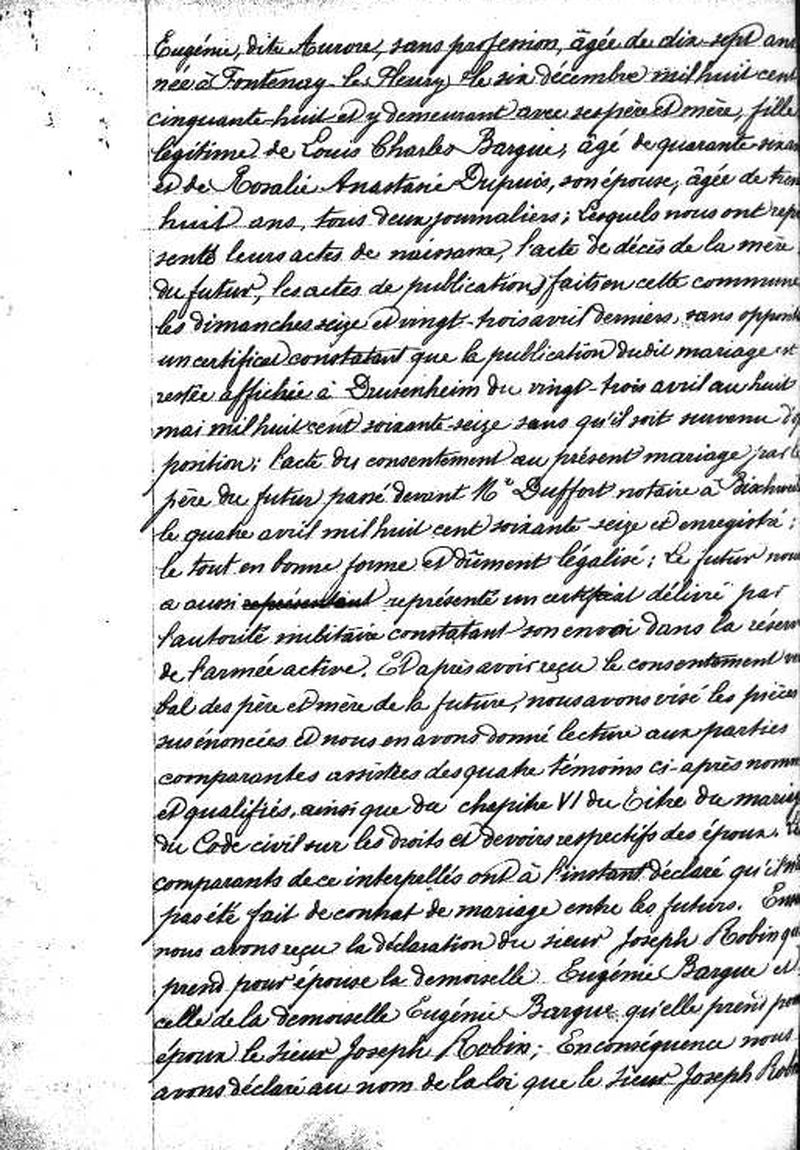 Eugénie, dite Aurore, sans profession, âgée de dix-sept ans
née à Fontenay-le-Fleury le six décembre mil huit cent
cinquante-huit et y demeurant avec ses père et mère, fille
légitime de Louis Charles Bargue, âgé de quarante-six an
et de Rosalie Anastasie Dupuis, son épouse, âgée de tren
huit ans, tous deux journaliers; Lesquels nous ont repré
senté leurs actes de naissance, l'acte de décès de la mère
du futur, les actes de publications faits en cette commune
les dimanches seize et vingt-trois avril derniers, sans opposit
un certificat constatant que la publication dudit mariage est
restée affichée à Drusenheim du vingt-trois avril au huit
mai mil huit cent soixante-seize sans qu'il soit survenu d'op
position; l'acte du consentement au présent mariage par le
père du futur passé devant Me Duffort notaire à Bischwil
le quatre avril mil huit cent soixante-seize et enregistré;
le tout en bonne forme et dûment légalisé; Le futur nous
a aussi représentant représenté un certificat délivré par
l'autorité militaire constatant son envoi dans la réserve
de l'armée active. Et après avoir reçu le consentement ver
bal des père et mère de la future, nous avons visé les pièces
susénoncées et nous en avons donné lecture aux parties
comparantes assistées des quatre témoins ci-après nommés
et qualifiés, ainsi que du chapitre VI du Titre du mariage
du Code civil sur les droits et devoirs respectifs des époux. Les
comparants de ce interpellés ont à l'instant déclaré qu'il n'a
pas été fait de contrat de mariage entre les futurs. Ensuite
nous avons reçu la déclaration du sieur Joseph Robin qu
prend pour épouse la demoiselle Eugénie Bargue et
celle de la demoiselle Eugénie Bargue qu'elle prend pour
époux le sieur Joseph Robin; En conséquence nous
avons déclaré au nom de la loi que le sieur Joseph Robin